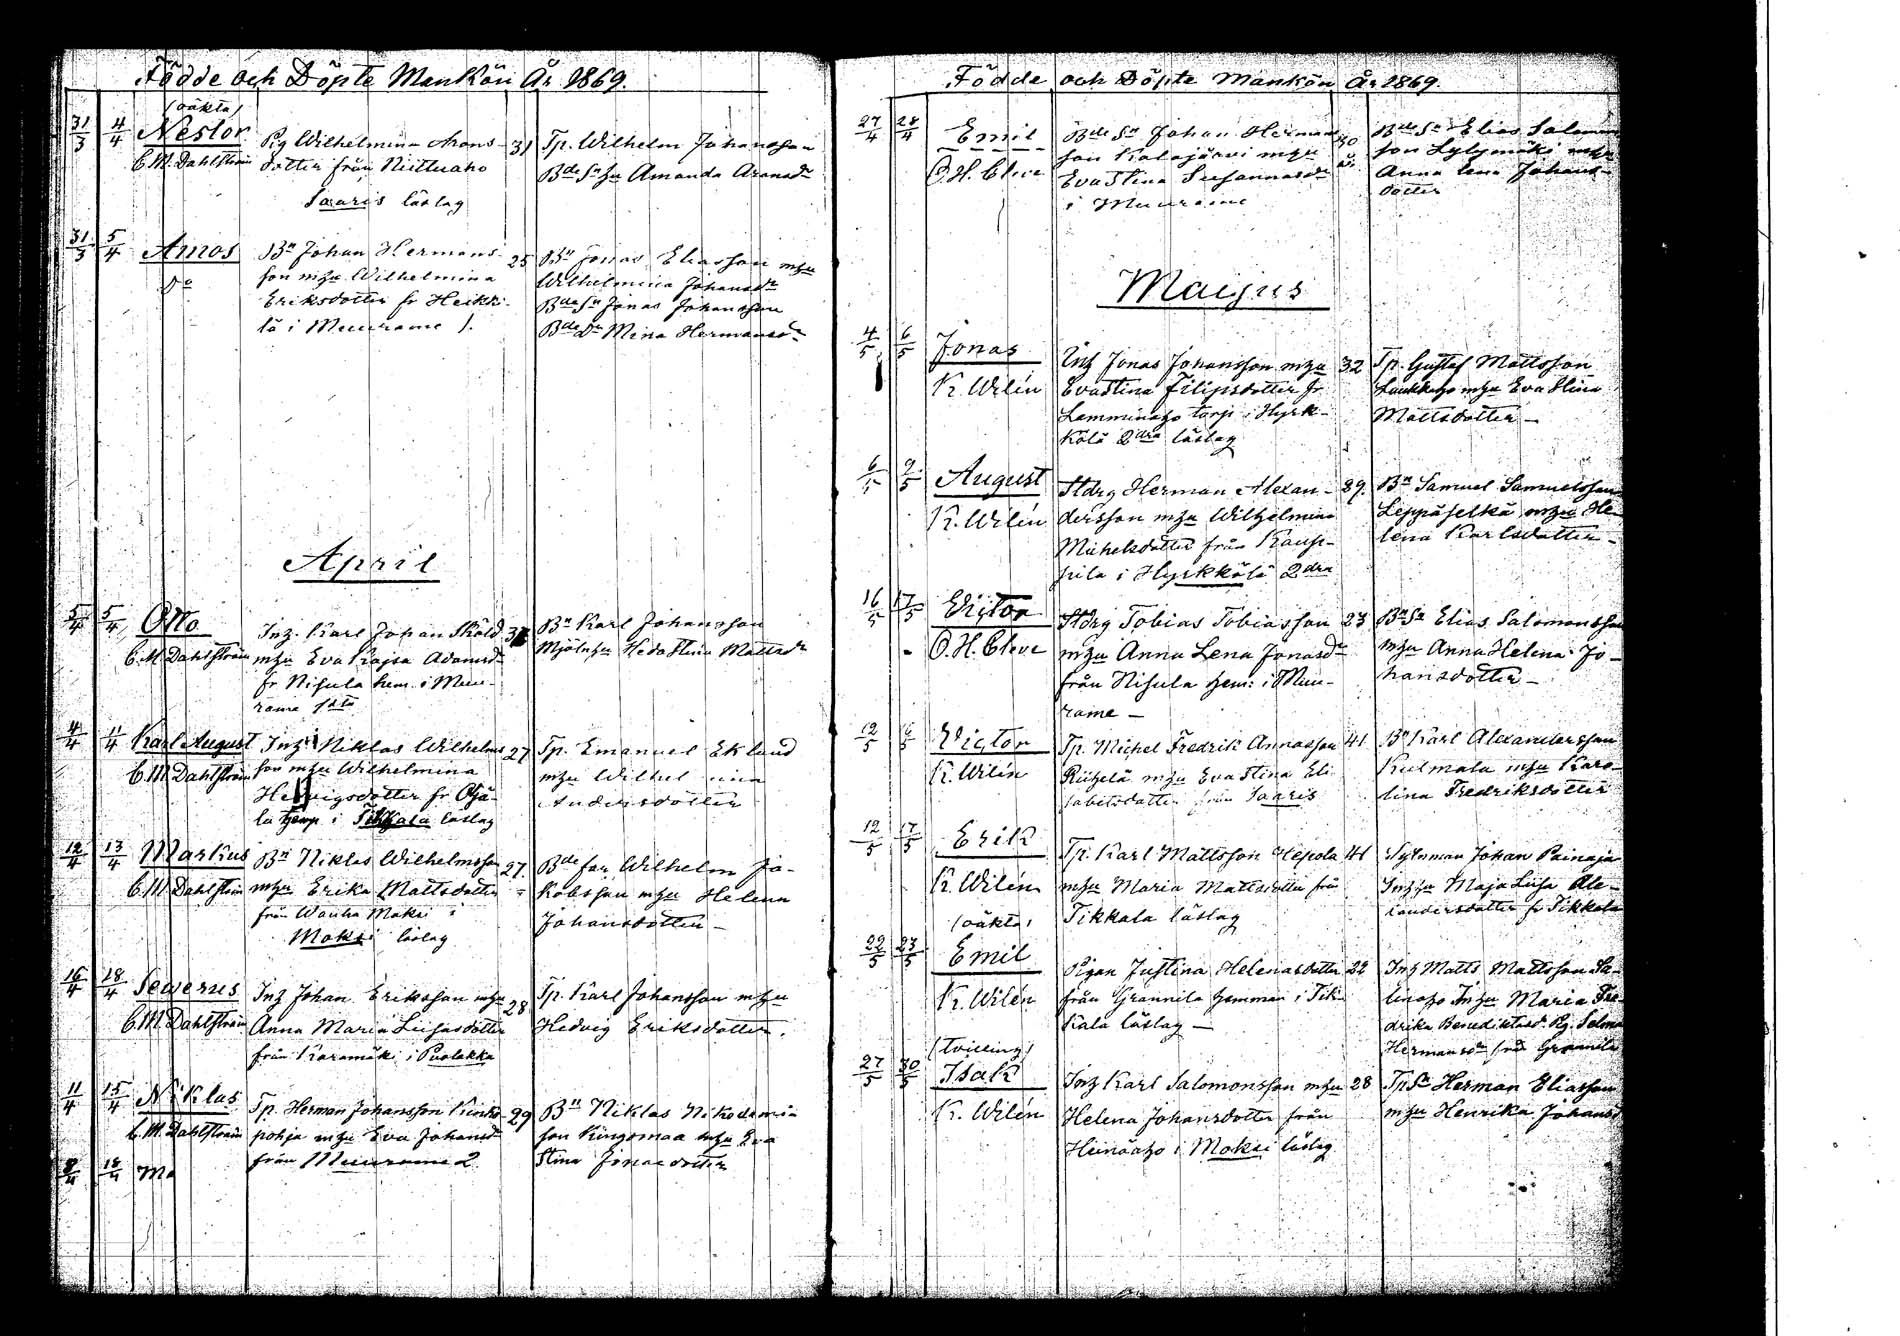 Födde och Döpte Mankön År 1869.
(oäkta)
31/3 4/4 Nestor
C. M. Dahlström
Pig Wilhelmina
dotter från Niittuaho
Saaris läslag
31
Tp. Wilhelm Johansson
Bde Sn hu Amanda
31/3 5/4 Amos
Do
Bn Johan Hermans
son m hu Wilhelmina
Eriksdotter fr Heikki
lä i Muurame 1.
25
Bn Jonas Eliasson m hu
Wilhelmina Johansdr
Bde Sn Jonas Johansson
Bde Dr Mina Hermansdr
April
5/4 5/4 Otto
C. M. Dahlström
Inh. Karl Johan Sköld
m hu Eva Kajsa Adamsdr
fr Nisula hem. i Muu-
rame 1sta
Bn Karl Johansson
Mjöln hu Heda Stina Mattsdr
4/4 11/4 Karl August
C. M. Dahlström
Inh Niklas Wilhelms
son m hu Wilhelmina
Hedvigsdotter fr Ojä-
la hem i Tikkala läslag
27
Tp. Emanuel Eklund
m hu Wilhelmina
Andersdotter
12/4 13/4 Markus
C. M. Dahlström
Bn Niklas Wilhelmsson
m hu Erika Mattsdotter
från Wanha Moksi i
Moksi läslag
27
Bde far Wilhelm Ja-
kobsson m hu Helena
Johansdotter –
16/4 18/4 Sewerus
C. M. Dahlström
Inh Johan Eriksson m hu
Anna Maria Lisasdotter
från Karamäki i Puolakka
28
Tp. Karl Johansson m hu
Hedvig Eriksdotter.
11/4 15/4 Niklas
C. M. Dahlström
Tp. Herman Johansson
pohja m hu Eva Johansdr
från Muurame 2
29
Bn Niklas Nikodemia
son Kingomaa m hu Eva
Stina Jonasdotter
8/4 18/4 Ma
Födde och Döpte Mankön År 1869.
27/4 28/4 Emil
O. H. Cleve
Bde Sn Johan Herman
son Kalajärvi m hu
Eva Stina Susannasdr
i Muurame
30
år
Bde Sn Elias Salomon
son Lylymäki m hu
Anna Lena Johans-
dotter
Maijus
4/5 6/5 Jonas
K. Wilén
Inh Jonas Johansson m hu
Eva Stina Filipsdotter fr
Lamminaho torp i Hyrk-
kölä 2dra läslag
32
Tp. Gustaf Mattsson
Laukkaho m hu Eva Stina
Mattsdotter –
6/5 9/5 August
K. Wilén
Stdrg Herman Alexan-
dersson m hu Wilhelmina
Michelsdotter från Kaup-
pila i Hyrkkölä 2dra
39.
Bn Samuel Samuelsson
Leppäselkä m hu He-
lena Karlsdotter –
16/5 17/5 Victor
O. H. Cleve
Stdrg Tobias Tobiasson
m hu Anna Lena Jonasdr
från Nisula hem: i Muu-
rame –
23
Bn Sn Elias Salomonsson
m hu Anna Helena Jo-
hansdotter –
12/5 16/5 Victor
K. Wilén
Tp. Michel Fredrik Annasson
Riihelä m hu Eva Stina Eli
sabetsdotter från Saaris
41
Bn Karl Alexandersson
Kulmala m hu Karo-
lina Fredriksdotter
12/5 17/5 Erik
K. Wilén
Tp. Karl Mattsson Hepola
m hu Maria Mattsdotter från
Tikkala läslag
41
Sytnman Johan Painaja
Inh hu Maja Lisa Ale-
xandersdotter fr Tikkala
(oäkta)
22/5 23/5 Emil
K. Wilén
Pigan Justina Helenasdotter
från Grannila hemman i Tik-
kala läslag –
22
Inh Matts Mattsson Sa-
linaho Inh hu Maria Fre-
drika Benediktsd. Pg. Selma
Hermansdr från Grannila
(tvilling)
27/5 30/5 Isak
K. Wilén
Inh Karl Salomonsson m hu
Helena Johansdotter från
Heinäaho i Moksi läslag
28
Tp Sn Herman Eliasson
m hu Henrika Johansd